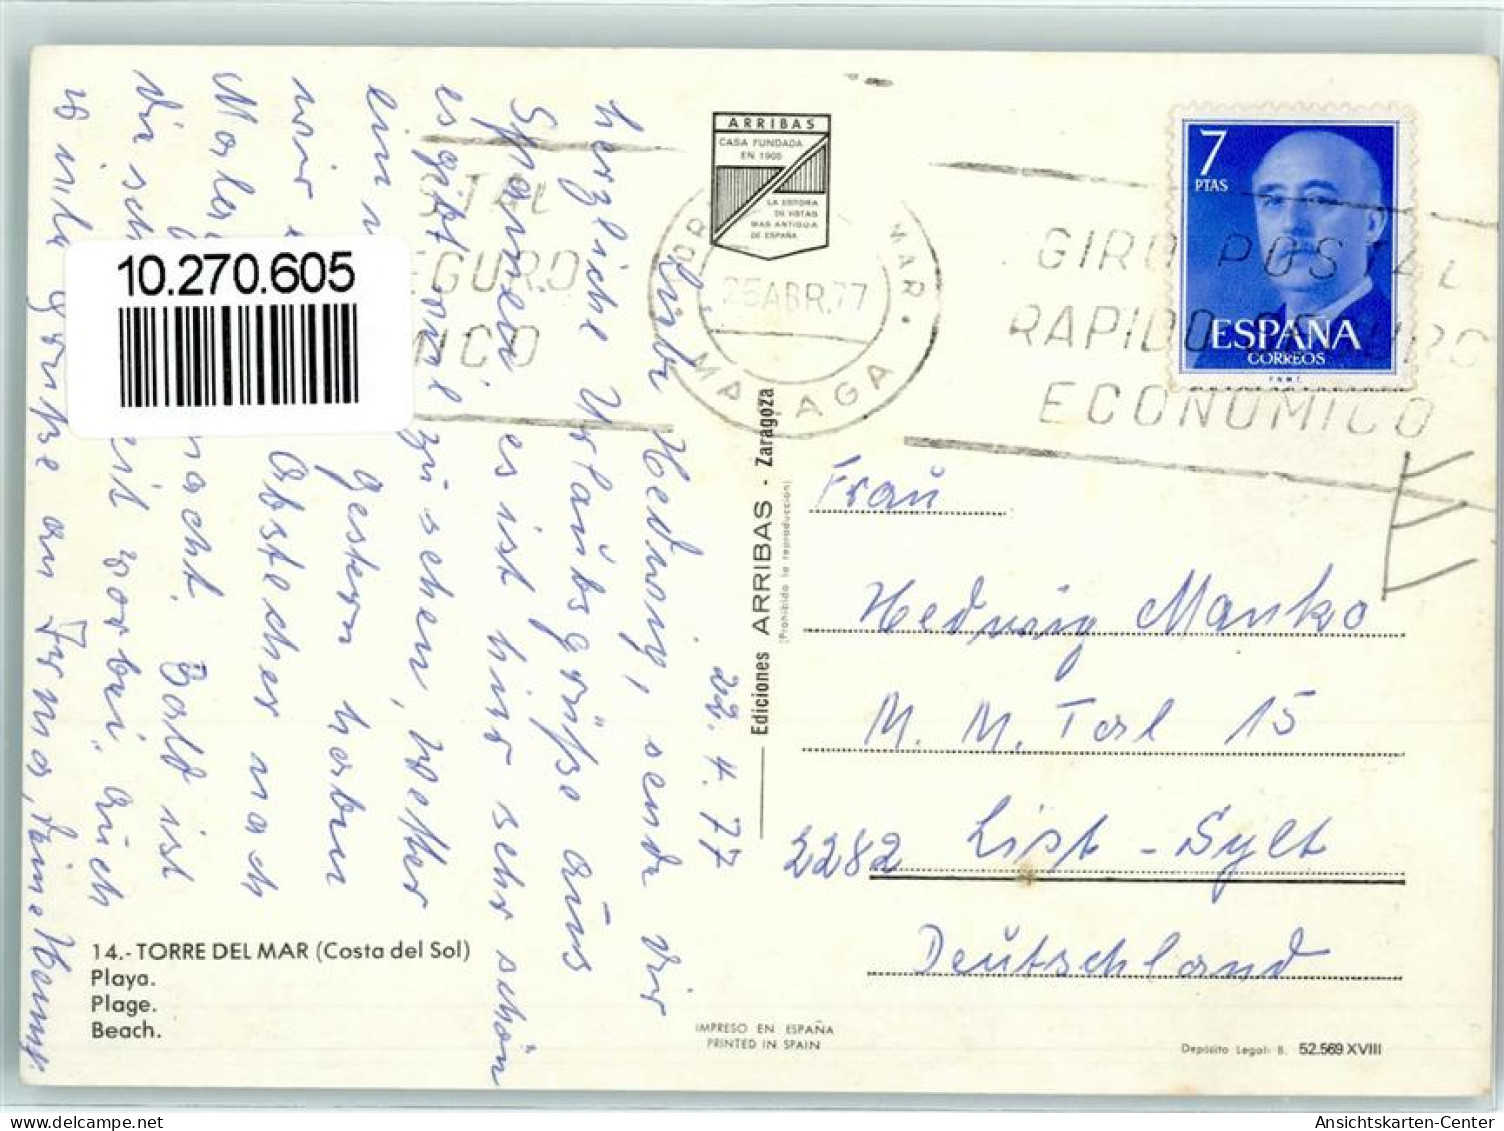 22.4.77
Liebe Hedwig, sende Dir
herzliche Urlaubsgrüße aus
Spanien. es ist hier sehr schön
es gibt viel zu sehen, Wetter
gestern haben
wir Abstecher nach
macht. Bald ist
die sch eit vorbei. auch
viele Grüße an Irma, Deine
10.270.605
ARRIBAS
CASA FUNDADA
EN 1905
LA EDITORA
DE VISTAS
MAS ANTIGUA
DE ESPAÑA
25 ABR. 77
MALAGA
MAR.
STAL
EGURO
MICO
GIRO POSTAL
RAPIDO SEGURO
ECONOMICO
7
PTAS
ESPAÑA
CORREOS
F.N.M.T.
Ediciones ARRIBAS - Zaragoza
(Prohibida la reproducción)
Frau
Hedwig Manko
M. M. Tal 15
2282 List - Sylt
Deutschland
14.- TORRE DEL MAR (Costa del Sol)
Playa.
Plage.
Beach.
IMPRESO EN ESPAÑA
PRINTED IN SPAIN
Depósito Legal: B. 52.569 XVIII
Ansichtskarten-Center